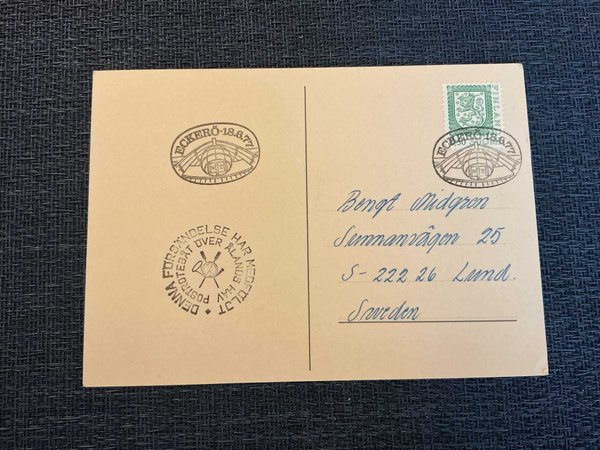 FINLAND
ECKERÖ · 18.6.77
ECKERÖ · 18.6.77
DENNA FÖRSÄNDELSE HAR MEDFÖLJT
POSTROTEBÅT ÖVER ÅLANDS HAV
Bengt Midgron
Sunnanvägen 25
S-222 26 Lund.
Sweden